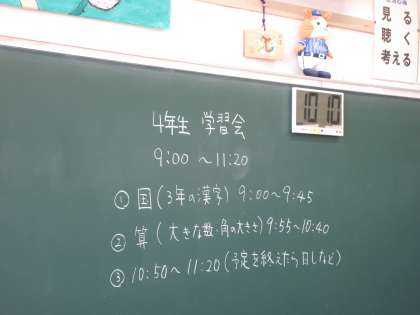 見る
聴く
考える
10 10
4年生 学習会
9:00 ～11:20
① 国(3年の漢字) 9:00～9:45
② 算(大きな数・角の大きさ) 9:55～10:40
③ 10:50～11:20(予定を終えたら日しなど)